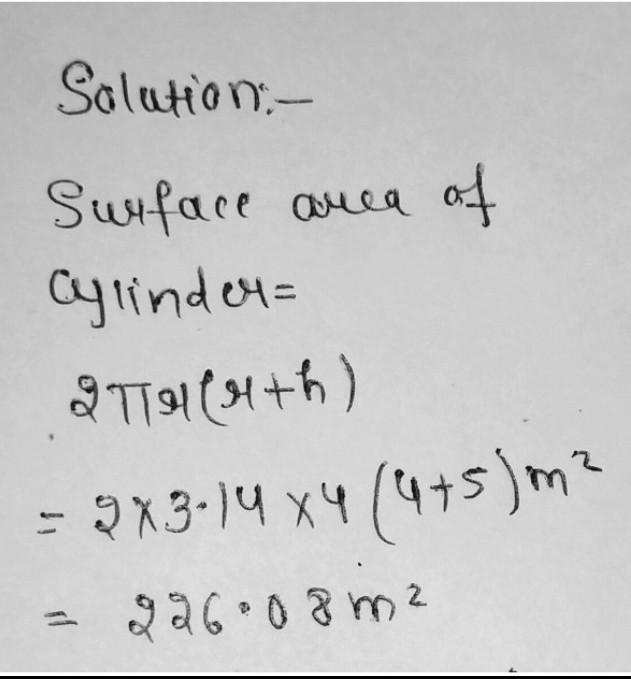 Solution:-
Surface area of
Cylinder=
2πr(r+h)
= 2×3·14 ×4 (4+5)m²
= 226·08m²